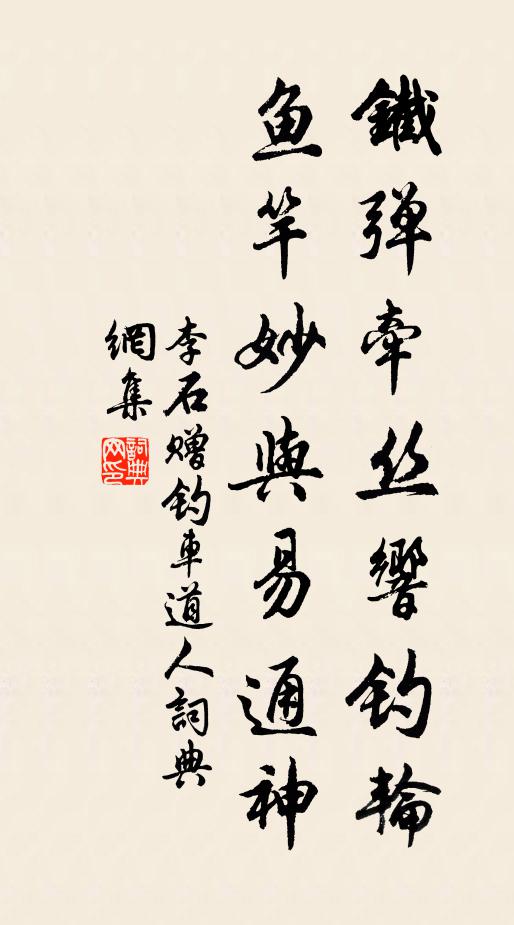 鐵弹牵丝響钓輪
鱼竿妙與易通神
李石赠钓車道人詞典
網集
詞典网印